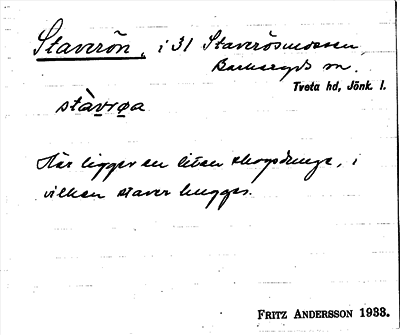 Staverön, i 31 Staverösmossen,
Barkeryds sn.
Tveta hd, Jönk. l.
stàvrøa
Här ligger en liten skogsdunge, i
vilken staver hugges.
FRITZ ANDERSSON 1933.